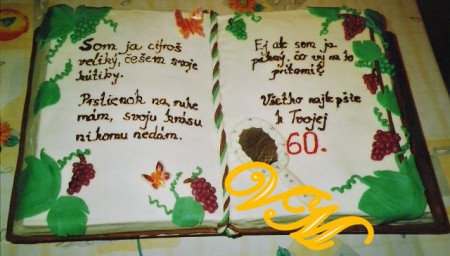 Som ja cifroš
veliký, češem svoje
kštiky.
Prstienok na ruke
mám, svoju krásu
nikomu nedám.
Ej ale som ja
pekný, čo vy na to
prítomí?
Všetko najlepšie
k Tvojej
60.
VM